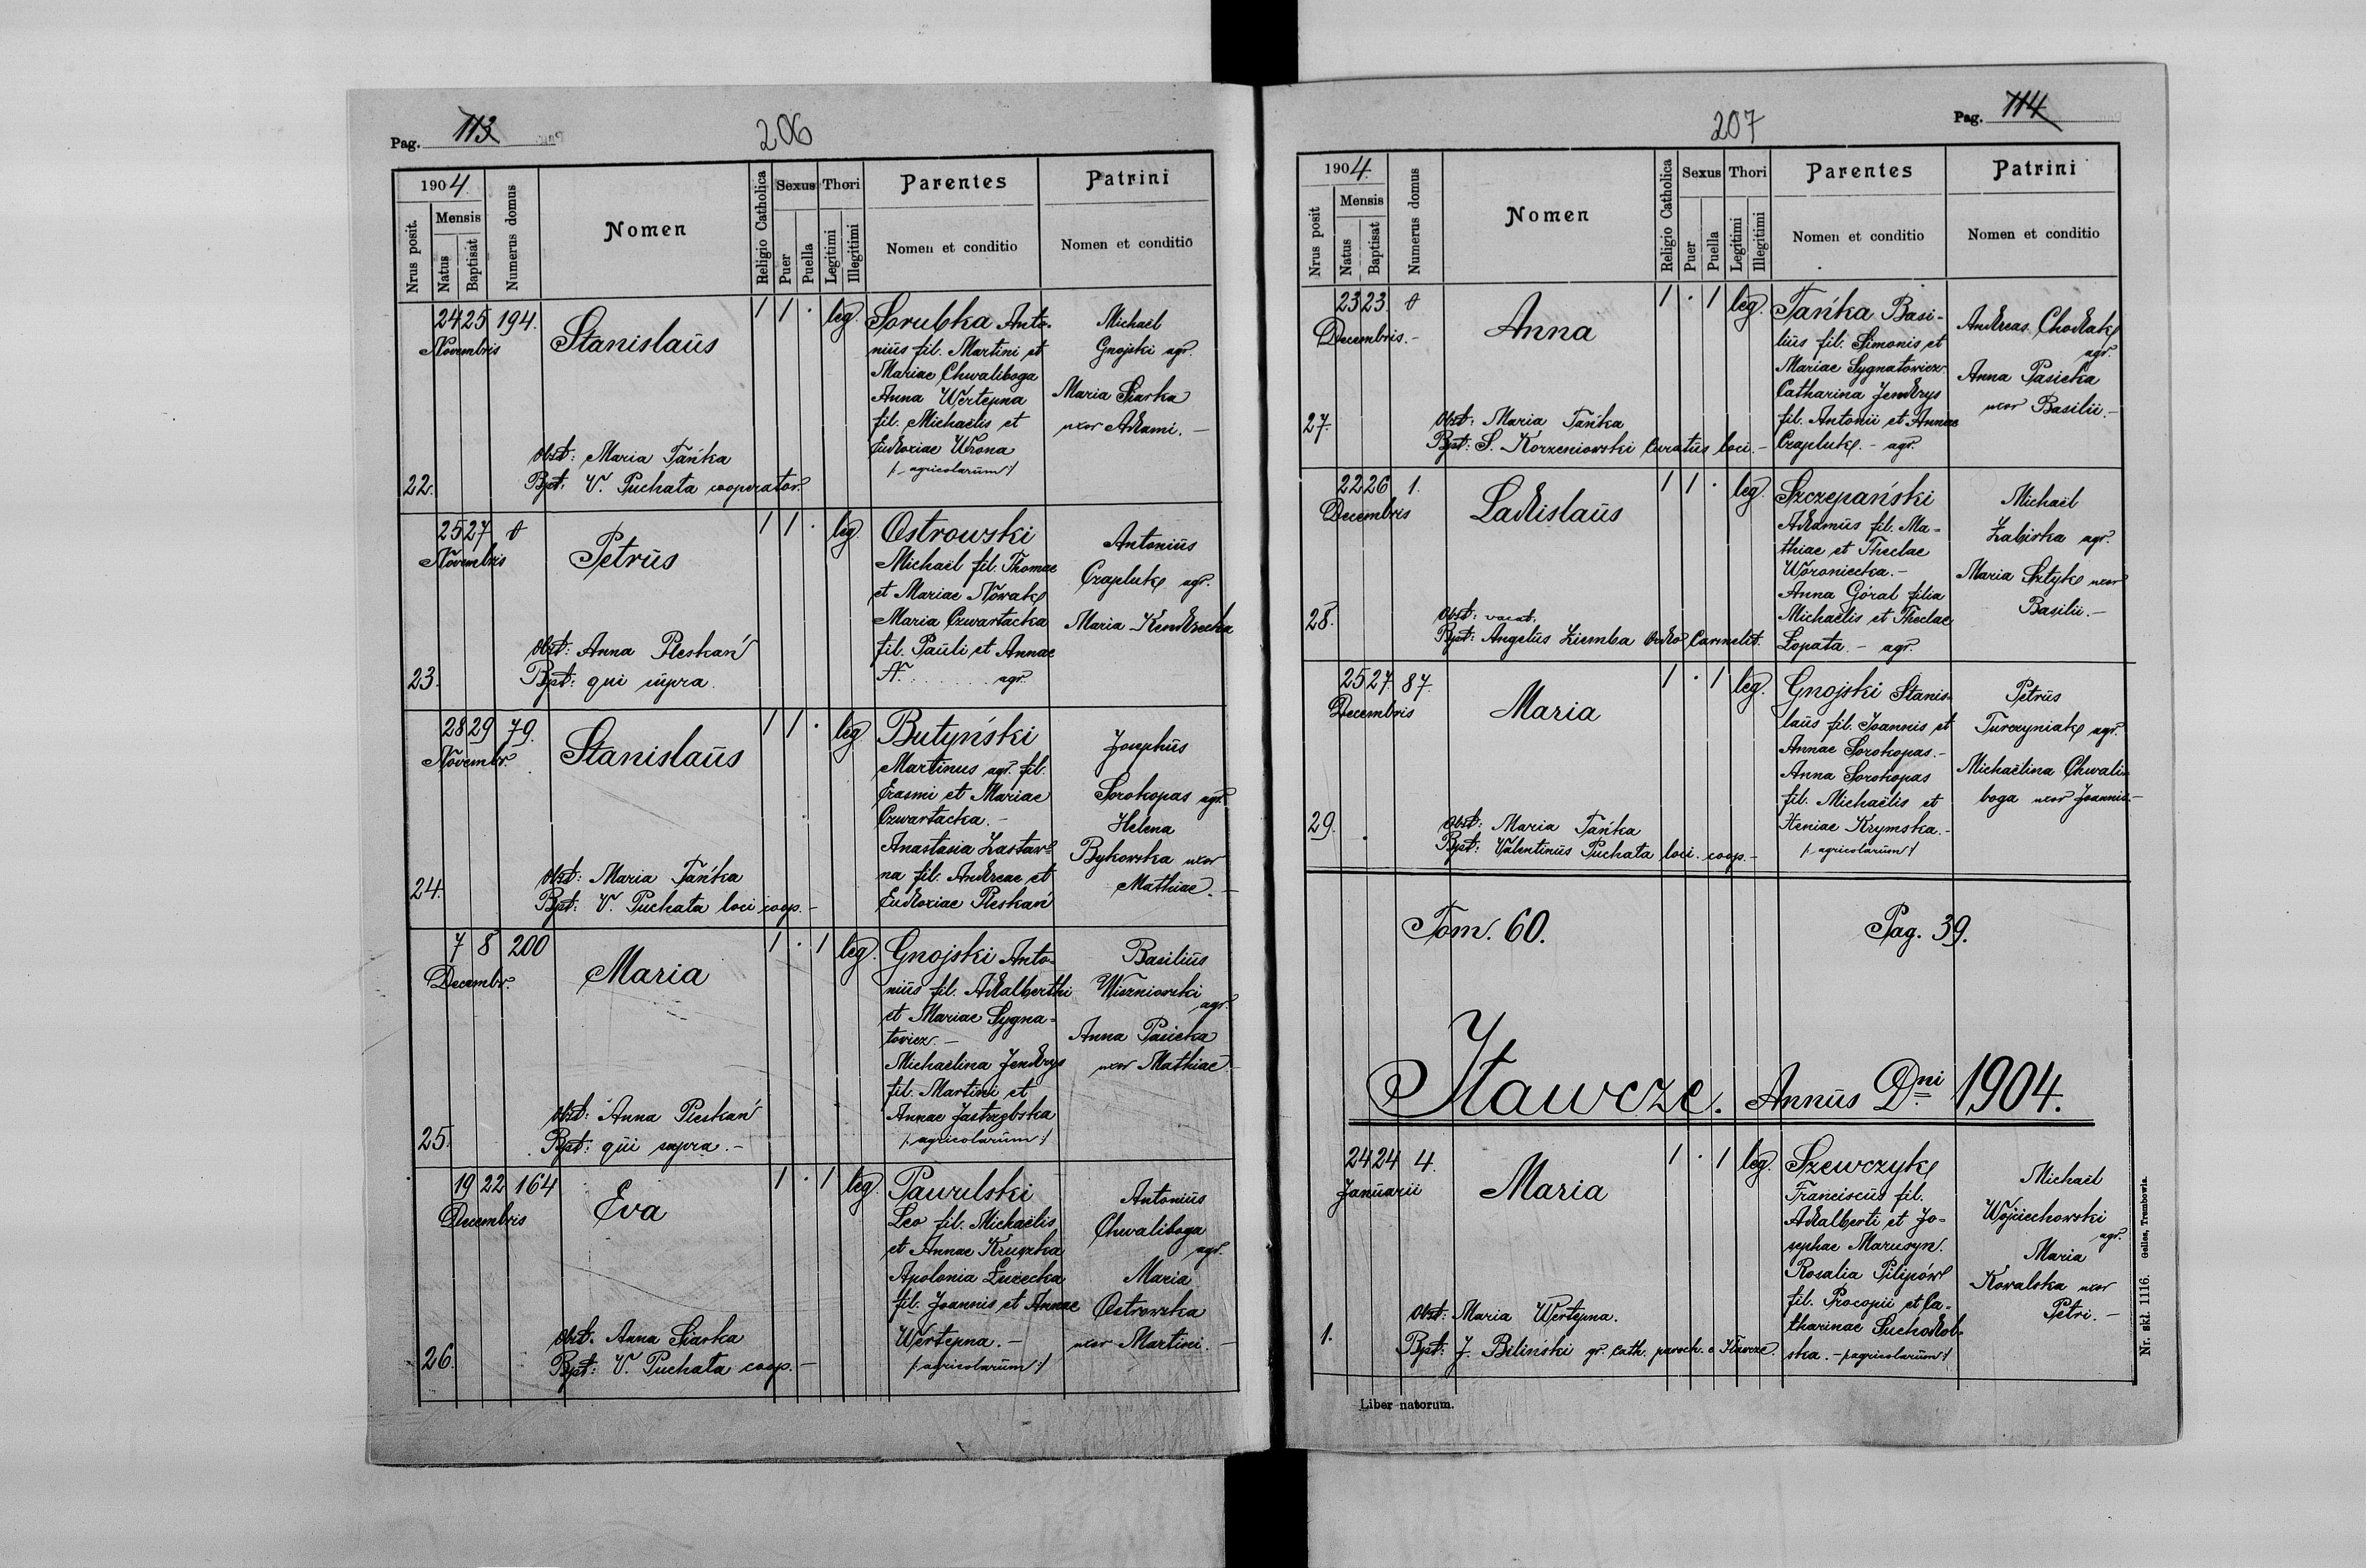 Pag. 113
206
1904
Nrus posit.
Mensis
Natus
Baptisat
Numerus domus
Nomen
Religio Catholica
Sexus
Puer
Puella
Thori
Legitimi
Illegitimi
Parentes
Nomen et conditio
Patrini
Nomen et conditio
22.
24 25 194.
Novembris
Stanislaüs
1 1 · leg.
Sorubka Anto-
niüs fil. Martini et
Mariae Chwaliboga
Anna Wertepna
fil. Michaëlis et
Eudoxiae Wrona
/: agricolarüm :/
Michaël
Gnojski agr.
Maria Siarka
uxor Adami. –
Obst: Maria Tańka
Bpt: V. Puchata cooperator.
23.
25 27
Novembris
Petrüs
1 1 · leg.
Ostrowski
Michaël fil. Thomae
et Mariae Nowak
Maria Czwartacka
fil. Paüli et Annae
N. . . . . . . agr.
Antoniüs
Czapluk agr.
Maria Kendzecka
Obst: Anna Pleskań
Bpt: qui süpra.
24.
28 29 79.
Novembr.
Stanislaüs
1 1 · leg.
Butyński
Martinus agr. fil.
Erasmi et Mariae
Czwartacka. –
Anastasia Zastaw=
na fil. Andreae et
Eudoxiae Pleskań
Josephüs
Sorokopas agr.
Helena
Bykowska uxor
Mathiae. –
Obst: Maria Tańka
Bpt: V. Puchata loci coop. –
25.
7 8 200
Decembr.
Maria
1 · 1 leg.
Gnojski Anto-
niüs fil. Adalberthi
et Mariae Sygna=
towicz. –
Michaëlina Jendrys
fil. Martini et
Annae Jastrzębska
/: agricolarüm :/
Basiliüs
Wiszniowski
agr.
Anna Pasieka
uxor Mathiae
Obst: Anna Pleskań
Bpt: qüi supra. –
26.
19 22 164
Decembris
Eva
1 · 1 leg.
Pawulski
Leo fil. Michaëlis
et Annae Kruszka
Apolonia Łuzecka
fil. Joannis et Annae
Wertepna. –
/: agricolarüm :/
Antoniüs
Chwaliboga
agr.
Maria
Ostrowska
uxor Martini. –
Obst. Anna Siarka
Bpt: V. Puchata coop. –
207
Pag. 114
1904.
Nrus posit
Mensis
Natus
Baptisat
Numerus domus
Nomen
Religio Catholica
Sexus
Puer
Puella
Thori
Legitimi
Illegitimi
Parentes
Nomen et conditio
Patrini
Nomen et conditio
27.
23 23.
Decembris. –
Anna
1 · 1 leg.
Tańka Basi-
liüs fil. Simonis et
Mariae Sygnatowicz.
Catharina Jendrys
fil. Antonii et Annae
Czapluk. – agr.
Andreas Chodak
agr.
Anna Pasieka
uxor Basilii. –
Obst: Maria Tańka
Bpt: S. Korzeniowski Curatüs loci. –
28.
22 26 1.
Decembris
Ladislaüs
1 1 · leg.
Szczepański
Adamüs fil. Ma-
thiae et Theclae
Woroniecka. –
Anna Góral filia
Michaëlis et Theclae
Łopata. – agr.
Michaël
Zabirka agr.
Maria Sztyk uxor
Basilii. –
Obst: vacat.
Bpt: Angelüs Ziemba Ordo Carmelit.
29.
25 27. 87.
Decembris
Maria
1 · 1 leg.
Gnojski Stanis-
laüs fil. Joannis et
Annae Sorokopas. –
Anna Sorokopas
fil. Michaëlis et
Xeniae Krymska. –
/: agricolarüm :/
Petrüs
Turczyniak agr.
Michaëlina Chwali-
boga uxor Joannis. –
Obst: Maria Tańka
Bpt: Valentinüs Puchata loci. coop. –
Tom. 60. Pag. 39.
Iławcze. Annüs Dni 1904.
1.
24 24 4.
Januarii
Maria
1 · 1 leg.
Szewczyk
Franciscüs fil.
Adalberti et Jo-
sephae Marusyn.
Rosalia Pilipów
fil. Procopii et Ca-
tharinae Suchodol-
ska. – /: agricolarüm :/
Michaël
Wojciechowski
agr.
Maria
Kowalska uxor
Petri. –
Obst: Maria Wertepna.
Bpt: J. Biliński gr. cath. paroch. e Iławcze.
Liber natorum.
Nr. skl. 1116. Gelles, Trembowla.